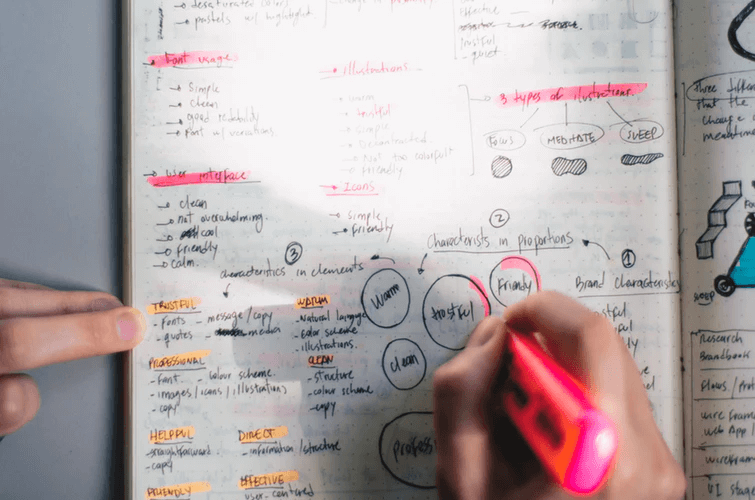 desaturated colors
pastels w/ highlight
Effective
trustful
quiet.
Font usages
simple
clean
good readability
Font w/ variations.
illustrations
warm
trustful
simple
Not too colorful
friendly
3 types of ilustrations.
Focus
MEDITATE
SLEEP
User interface
clean
not overwhelming.
cool
friendly
calm.
Icons
simple
friendly
3
characteristics in elements
2
Characterists in proportions
1
Brand characteristics
Warm
trustful
Friendly
clean
profess
TRUSTFUL
- Fonts - message/copy
- quotes - media
PROFESSIONAL
- Font - colour scheme.
- images/icons/illustrations
- copy
HELPFUL
straightforward.
- copy
FRIENDLY
WARM
- Natural language
- color scheme
- illustrations.
CLEAN
- structure
- colour scheme
- copy
DIRECT
- information/structure
EFFECTIVE
user-centered
Three differ
that the
change
SLEEP
Research
Brandbook
Flows / Prot
wire fram
web App /
wirefram
UI stag